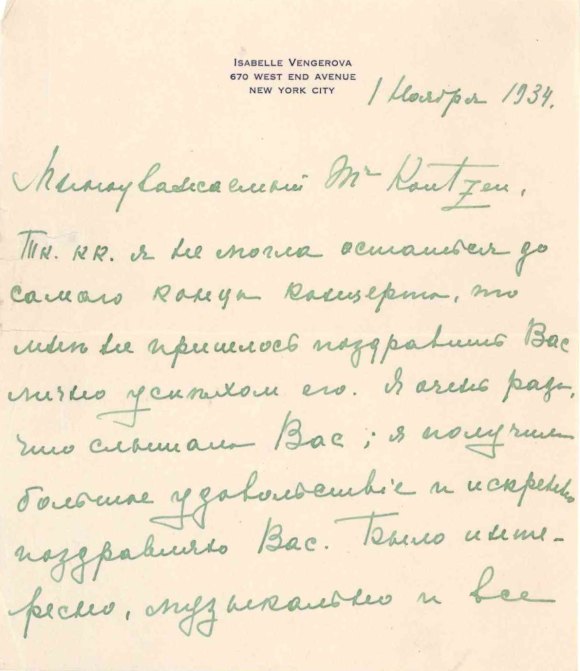 ISABELLE VENGEROVA
670 WEST END AVENUE
NEW YORK CITY
1 Ноября 1934.
Многоуважаемый Mr Koutzen,
Тк. кк. я не могла остаться до
самого конца концерта, то
мнѣ не пришлось поздравить Вас
лично успѣхом его. Я очень рада,
что слышала Вас; я получила
большое удовольствіе и искренно
поздравляю Вас. Было инте-
ресно, музыкально и все